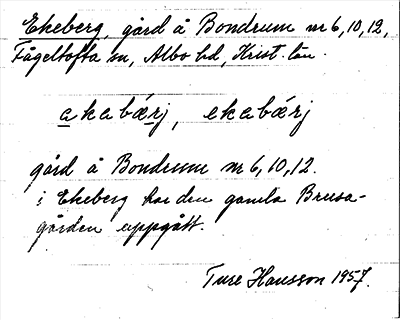 Ekeberg, gård å Bondrum nr 6, 10, 12,
Fågeltofta sn, Albo hd, Krist. län.
ekabǽrj, ekabǽrj
gård å Bondrum nr 6, 10, 12.
i Ekeberg har den gamla Brusa-
gården uppgått.
Ture Hansson 1957.